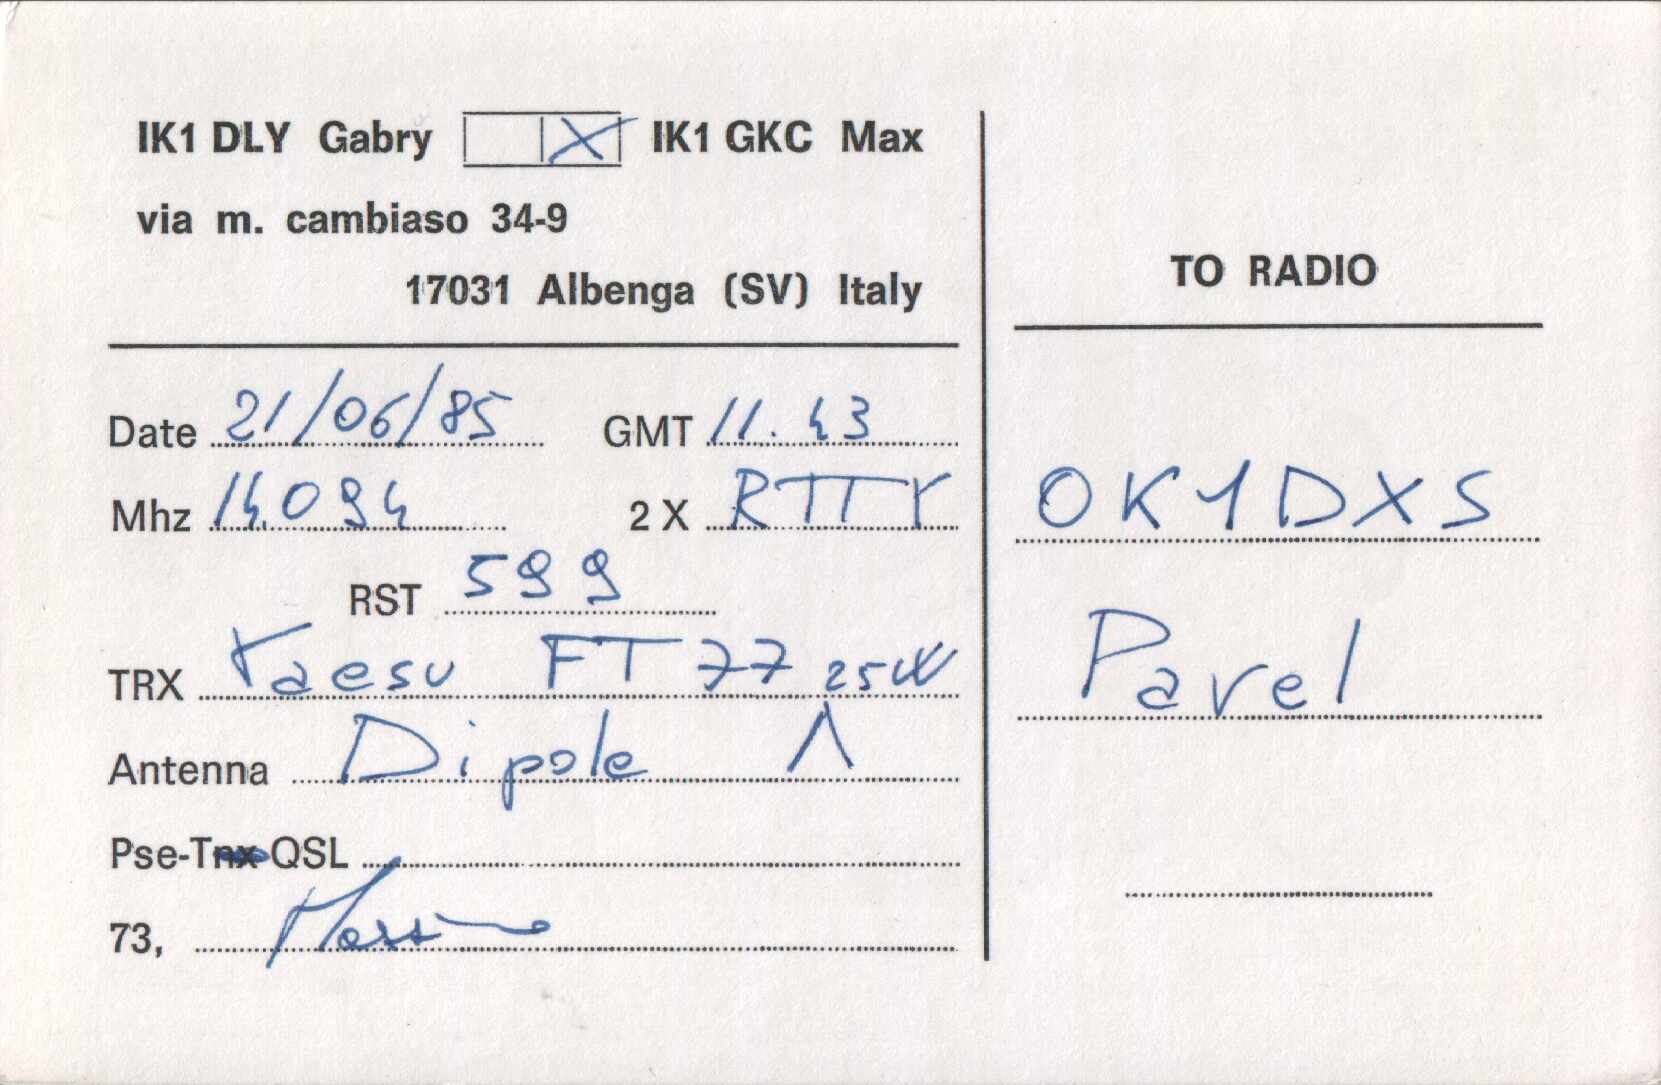 IK1 DLY Gabry X IK1 GKC Max
via m. cambiaso 34-9
17031 Albenga (SV) Italy
Date 21/06/85 GMT 11.43
Mhz 14.094 2 X RTTY
RST 599
TRX Yaesu FT 77 25W
Antenna Dipole Λ
Pse-Tnx QSL
73, Massimo
TO RADIO
OK1DXS
Pavel